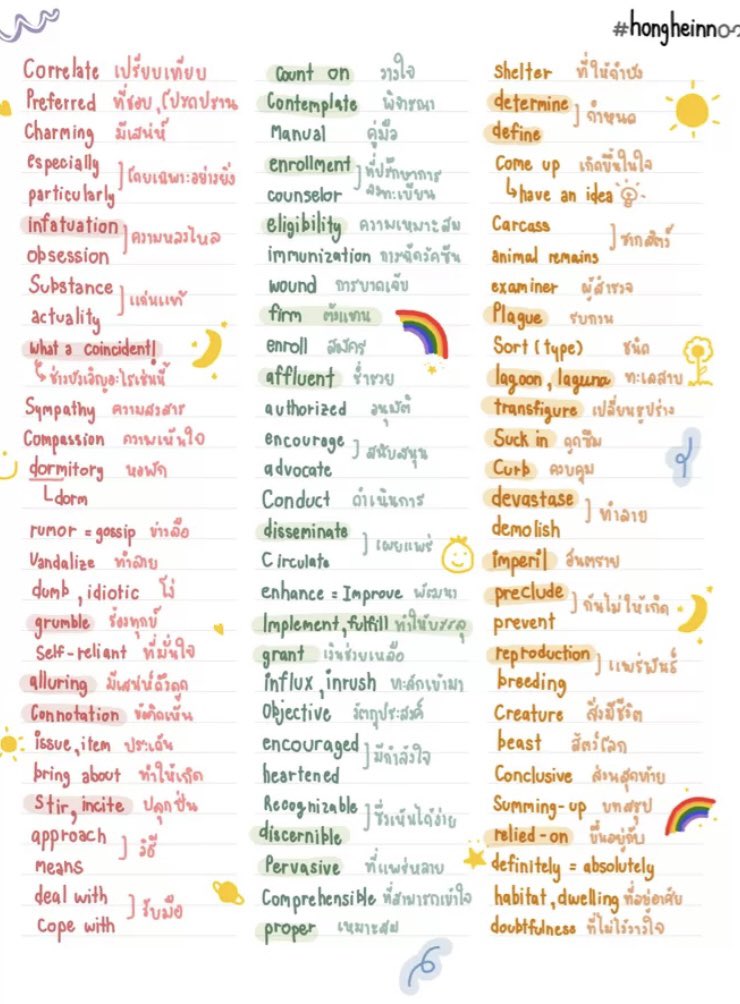 #hongheinno
Correlate เปรียบเทียบ
Preferred ที่ชอบ, โปรดปราน
Charming มีเสน่ห์
especially
particularly
โดยเฉพาะอย่างยิ่ง
infatuation
obsession
ความหลงใหล
Substance
actuality
แก่นแท้
what a coincident!
ช่างบังเอิญอะไรเช่นนี้
Sympathy ความสงสาร
Compassion ความเห็นใจ
dormitory หอพัก
dorm
rumor = gossip ข่าวลือ
Vandalize ทำลาย
dumb, idiotic โง่
grumble ร้องทุกข์
Self-reliant ที่มั่นใจ
alluring มีเสน่ห์ดึงดูด
Connotation ข้อคิดเห็น
issue, item ประเด็น
bring about ทำให้เกิด
Stir, incite ปลุกปั่น
approach
means
วิธี
deal with
Cope with
รับมือ
Count on วางใจ
Contemplate พิจารณา
Manual คู่มือ
enrollment
counselor
ที่ปรึกษาการ
ลงทะเบียน
eligibility ความเหมาะสม
immunization การฉีดวัคซีน
wound การบาดเจ็บ
firm ตัวแทน
enroll สมัคร
affluent ร่ำรวย
authorized อนุมัติ
encourage
advocate
สนับสนุน
Conduct ดำเนินการ
disseminate
Circulate
เผยแพร่
enhance = Improve พัฒนา
Implement, fulfill ทำให้บรรลุ
grant เงินช่วยเหลือ
influx, inrush ทะลักเข้ามา
Objective วัตถุประสงค์
encouraged
heartened
มีกำลังใจ
Recognizable
discernible
ซึ่งเห็นได้ง่าย
Pervasive ที่แพร่หลาย
Comprehensible ที่สามารถเข้าใจ
proper เหมาะสม
Shelter ที่ให้กำบัง
determine
define
กำหนด
Come up เกิดขึ้นในใจ
have an idea
Carcass
animal remains
ซากสัตว์
examiner ผู้สำรวจ
Plague รบกวน
Sort (type) ชนิด
lagoon, laguna ทะเลสาบ
transfigure เปลี่ยนรูปร่าง
Suck in ดูดซึม
Curb ควบคุม
devastase
demolish
ทำลาย
imperil อันตราย
preclude
prevent
กันไม่ให้เกิด
reproduction
breeding
แพร่พันธุ์
Creature สิ่งมีชีวิต
beast สัตว์โลก
Conclusive ส่วนสุดท้าย
Summing-up บทสรุป
relied-on ขึ้นอยู่กับ
definitely = absolutely
habitat, dwelling ที่อยู่อาศัย
doubtfulness ที่ไม่ไว้วางใจ